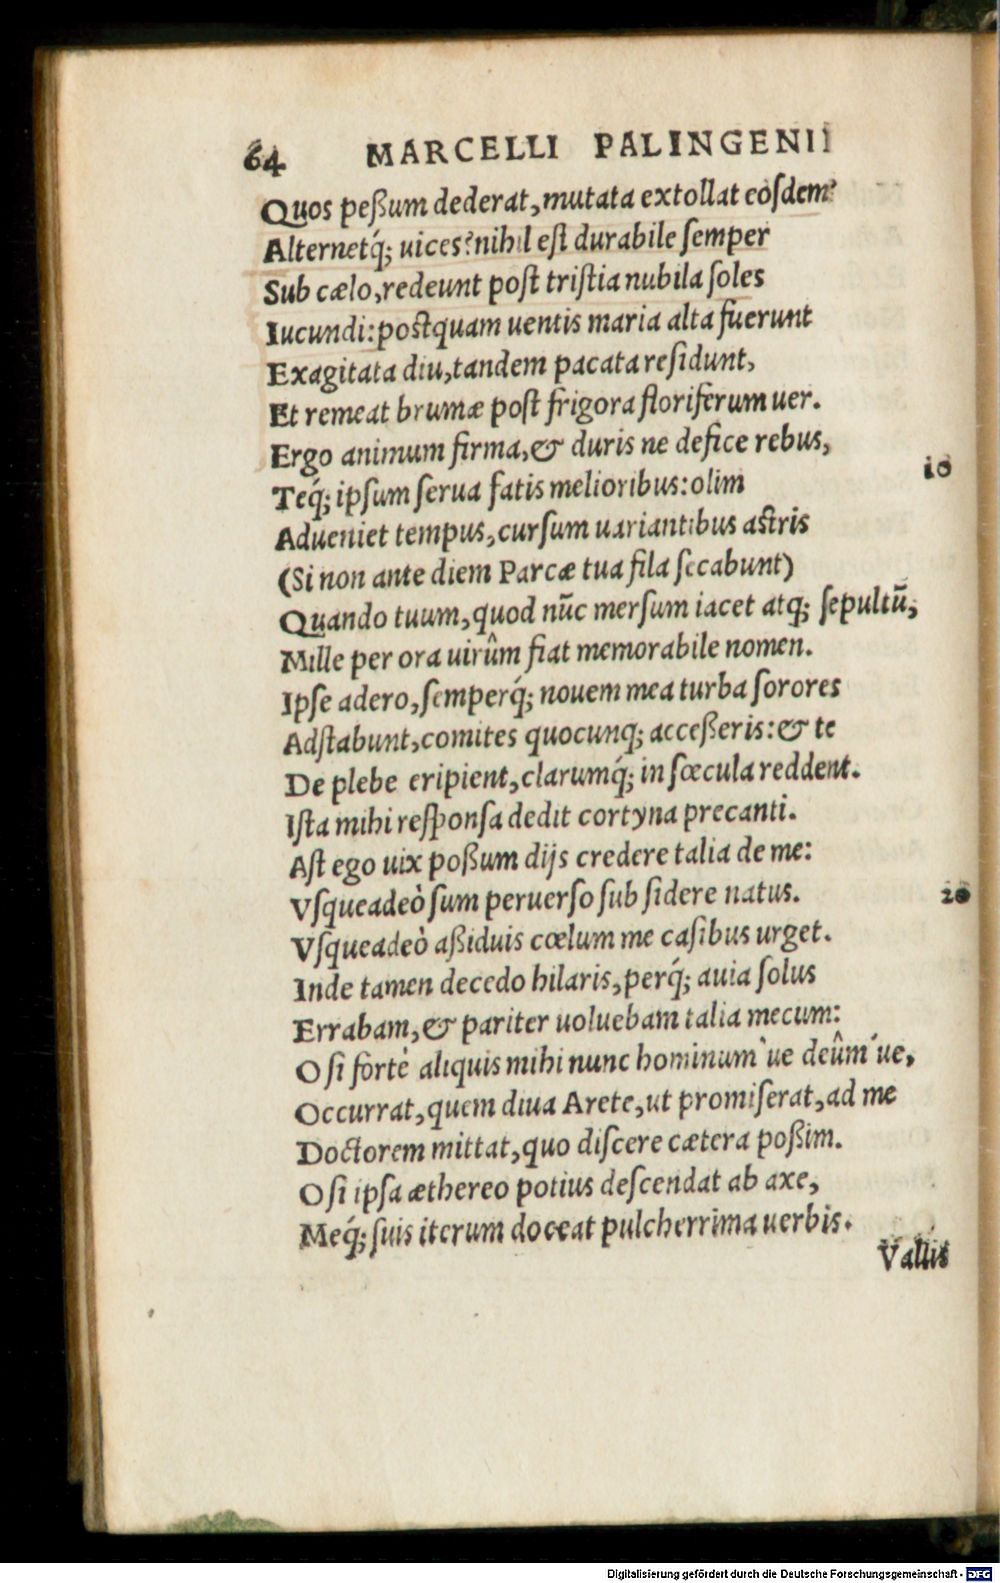 64 MARCELLI PALINGENII
Quos peßum dederat, mutata extollat eosdem?
Alternetq́; uices? nihil est durabile semper
Sub cælo, redeunt post tristia nubila soles
Iucundi: postquam uentis maria alta fuerunt
Exagitata diu, tandem pacata residunt,
Et remeat brumæ post frigora floriferum uer.
Ergo animum firma, & duris ne defice rebus,
10
Teq́; ipsum serua fatis melioribus: olim
Adueniet tempus, cursum uariantibus astris
(Si non ante diem Parcæ tua fila secabunt)
Quando tuum, quod nūc mersum iacet atq; sepultū,
Mille per ora uirûm fiat memorabile nomen.
Ipse adero, semperq́; nouem mea turba sorores
Adstabunt, comites quocunq; acceßeris: & te
De plebe eripient, clarumq́; in sœcula reddent.
Ista mihi responsa dedit cortyna precanti.
Ast ego uix poßum dijs credere talia de me:
Vsqueadeò sum peruerso sub sidere natus.
20
Vsqueadeò aßiduis cœlum me casibus urget.
Inde tamen decedo hilaris, perq́; auia solus
Errabam, & pariter uoluebam talia mecum:
O si fortè aliquis mihi nunc hominum`ue deûm´ue,
Occurrat, quem diua Arete, ut promiserat, ad me
Doctorem mittat, quo discere cætera poßim.
O si ipsa æthereo potius descendat ab axe,
Meq́; suis iterum doceat pulcherrima uerbis.
Vallis
Digitalisierung gefördert durch die Deutsche Forschungsgemeinschaft - DFG